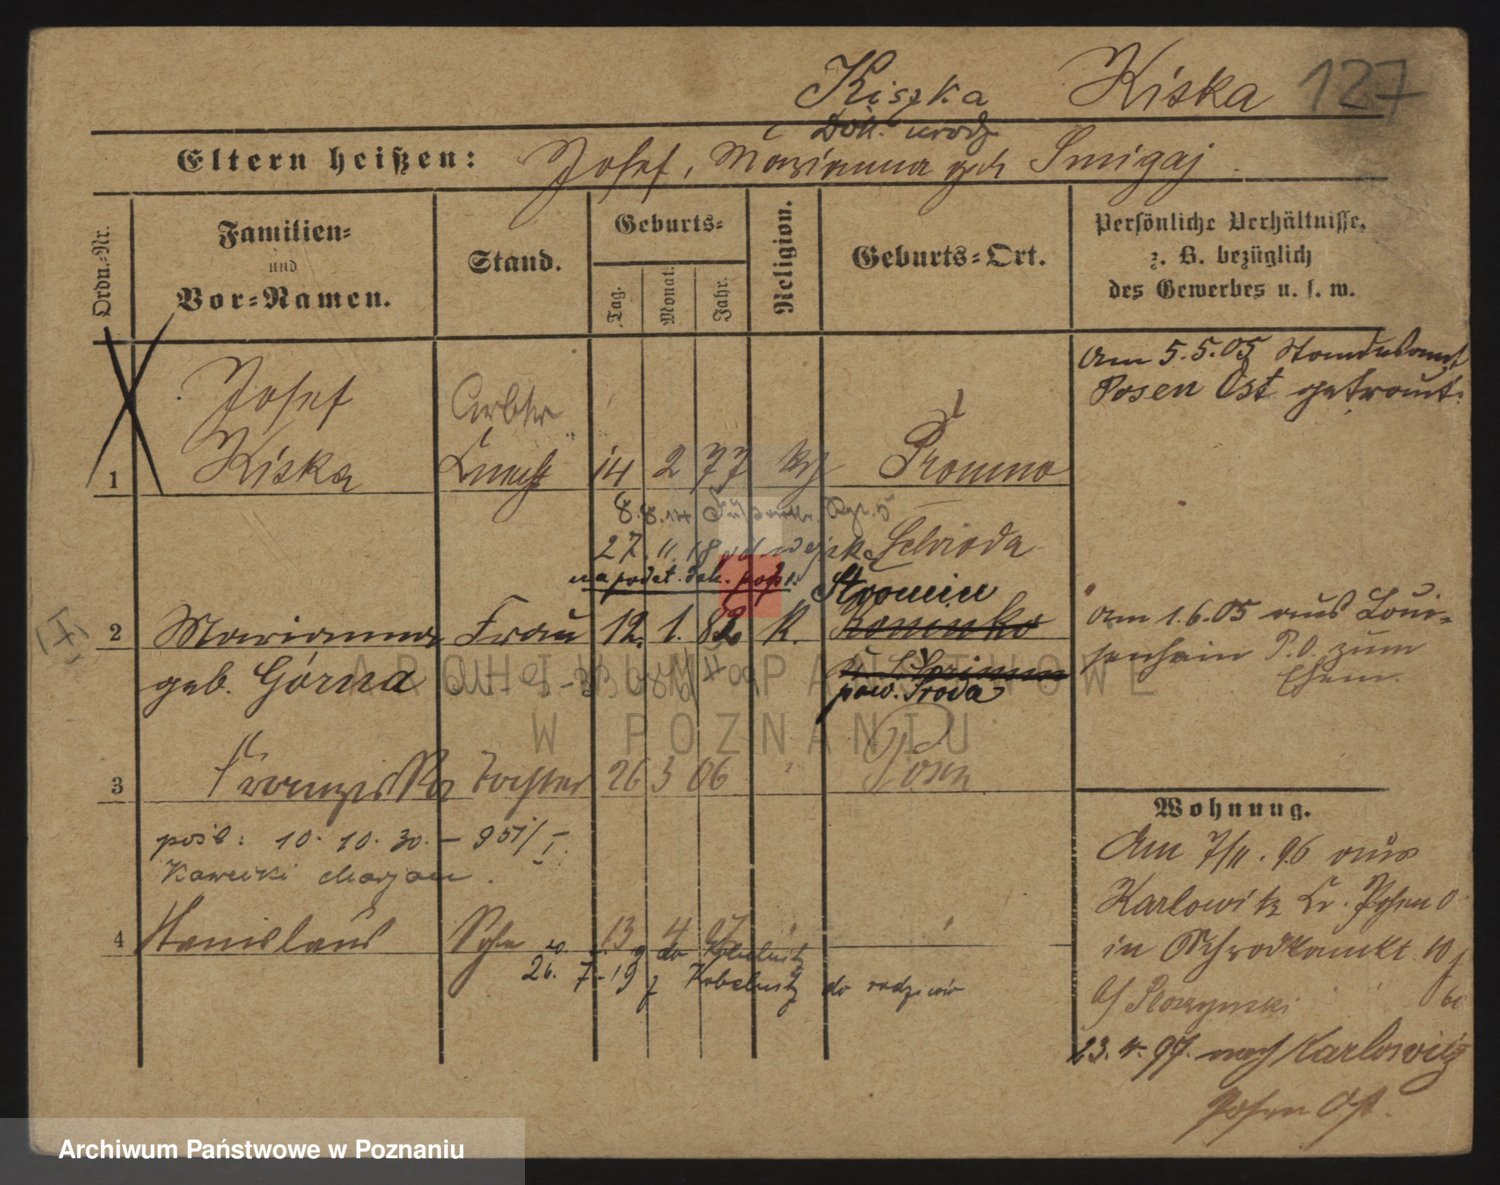 Kiszka Kiska 127
Dok. urodz
Eltern heißen: Josef, Marianna geb Smigaj.
Ordn.-Nr.
Familien- und Vor-Namen.
Stand.
Geburts-
Tag. Monat. Jahr.
Religion.
Geburts-Ort.
Persönliche Verhältnisse,
z. B. bezüglich
des Gewerbes u. s. w.
Am 5.5.05 Standesamt
Posen Ost getraut.
Josef Arbtr
1 Kiska Knecht 14 2 77 Promno
8.8.14
27.11.18 Schroda
na podst. dok. Stromin
2 Marianna Frau 12. 1. 82 K.
geb. Górna
pow. Środa
am 1.6.05 aus Loui-
senhain P.O. zum
Ehem.
3 Franziska Tochter 26 3 06 Posen
pośl: 10. 10. 30. – 951/I.
Kawecki Marjan.
4 Stanislaus Sohn 13 4 07 "
do Kobelnitz
26. 7.19 z Kobelnitz do rodziców
Wohnung.
Am 7/11. 96 aus
Karlowitz Kr. Posen O
in Schrodkamkt. 10
b/
23.4.97. nach Karlowitz
Posen Ost.
ARCHIWUM PAŃSTWOWE
W POZNANIU
Archiwum Państwowe w Poznaniu